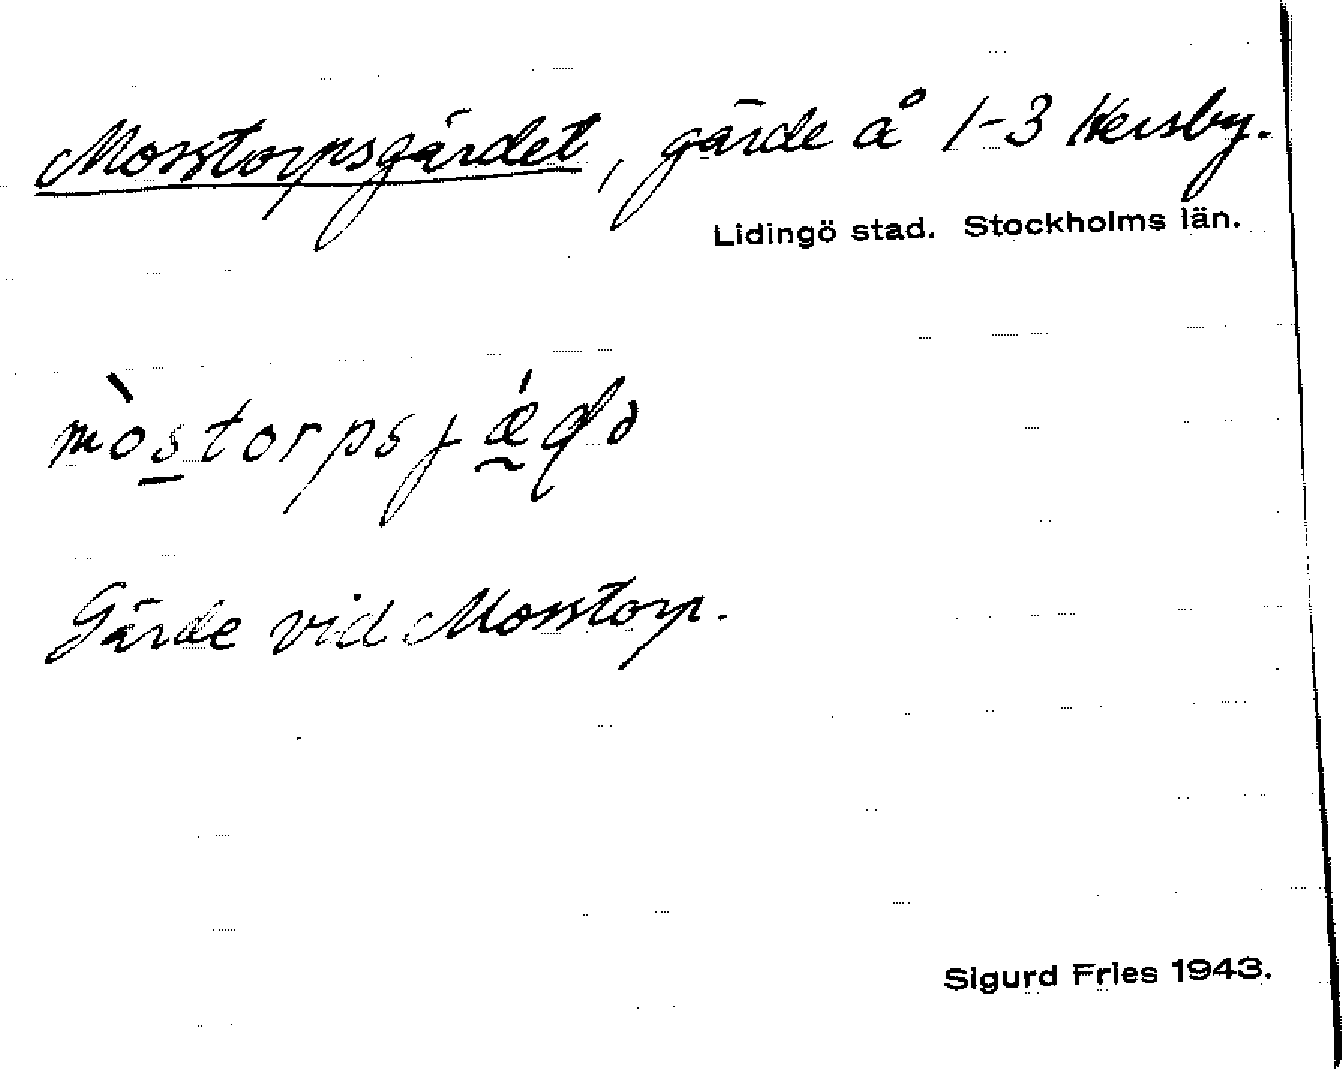 Mosstorpsgärdet, gärde å 1-3 Hersby.
Lidingö stad. Stockholms län.
Gärde vid Mosstorp.
Sigurd Fries 1943.